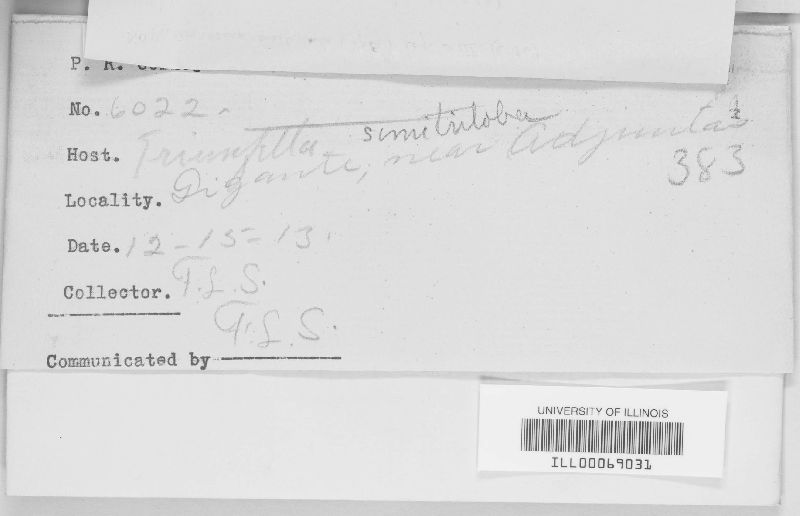 P. R.
No. 6022.
Host. Triumfetta semitriloba
Locality. Gigante, near Adjuntas
383
Date. 12-15-13.
Collector. F.L.S.
F.L.S.
Communicated by
UNIVERSITY OF ILLINOIS
ILL00069031